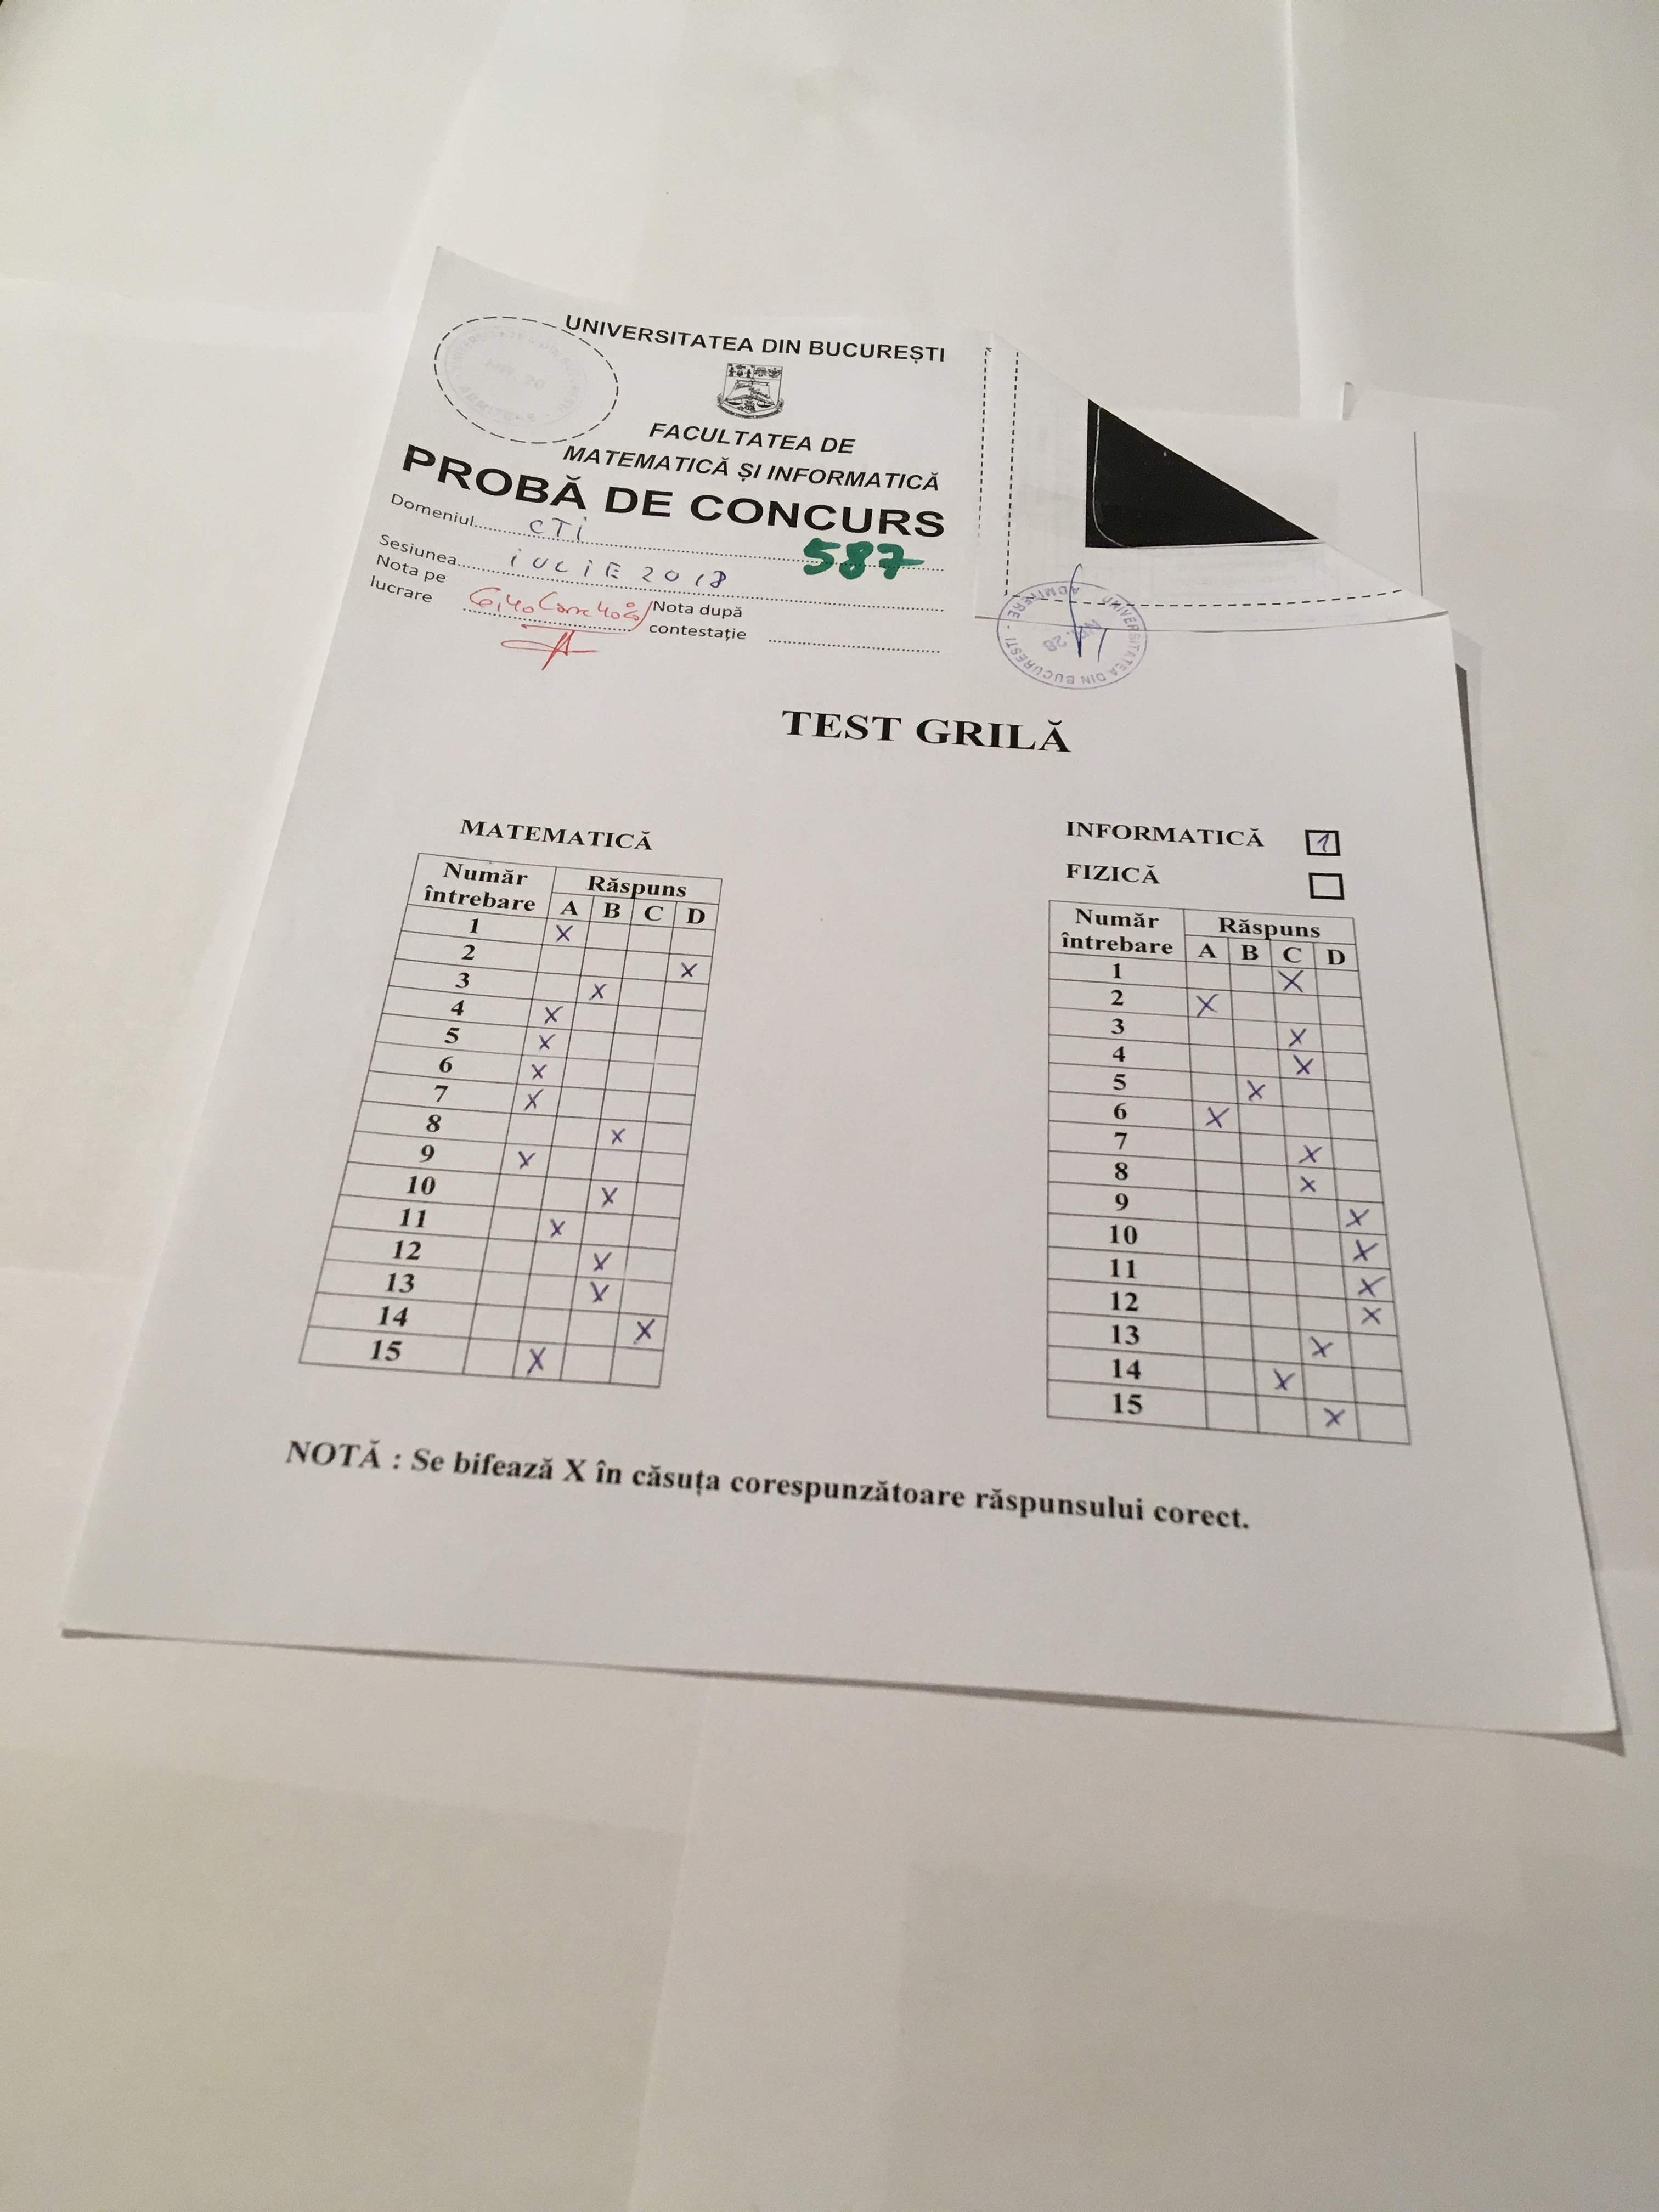 UNIVERSITATEA DIN BUCUREȘTI
FACULTATEA DE
MATEMATICĂ ȘI INFORMATICĂ
PROBĂ DE CONCURS
Domeniul CTI
587
Sesiunea iULiE 2018
Nota pe
lucrare
Nota după
contestație
UNIVERSITATEA DIN BUCUREȘTI · ADMITERE ·
TEST GRILĂ
MATEMATICĂ
Număr întrebare Răspuns
A B C D
1 X
2 X
3 X
4 X
5 X
6 X
7 X
8 X
9 X
10 X
11 X
12 X
13 X
14 X
15 X
INFORMATICĂ 1
FIZICĂ
Număr întrebare Răspuns
A B C D
1 X
2 X
3 X
4 X
5 X
6 X
7 X
8 X
9 X
10 X
11 X
12 X
13 X
14 X
15 X
NOTĂ : Se bifează X în căsuța corespunzătoare răspunsului corect.